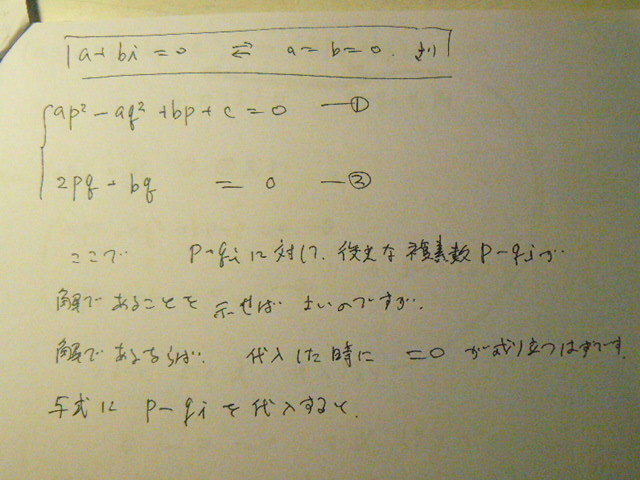 a+bi=0 ⇄ a=b=0. より
ap²-aq²+bp+c=0 ―①
2pq+bq = 0 ―②
ここで p-qiに対して、役な複素数p-qiが
解であることを示せばよいのですが.
解であるならば. 代入した時に =0 が成り立つはずです.
与式に p-qiを代入すると.